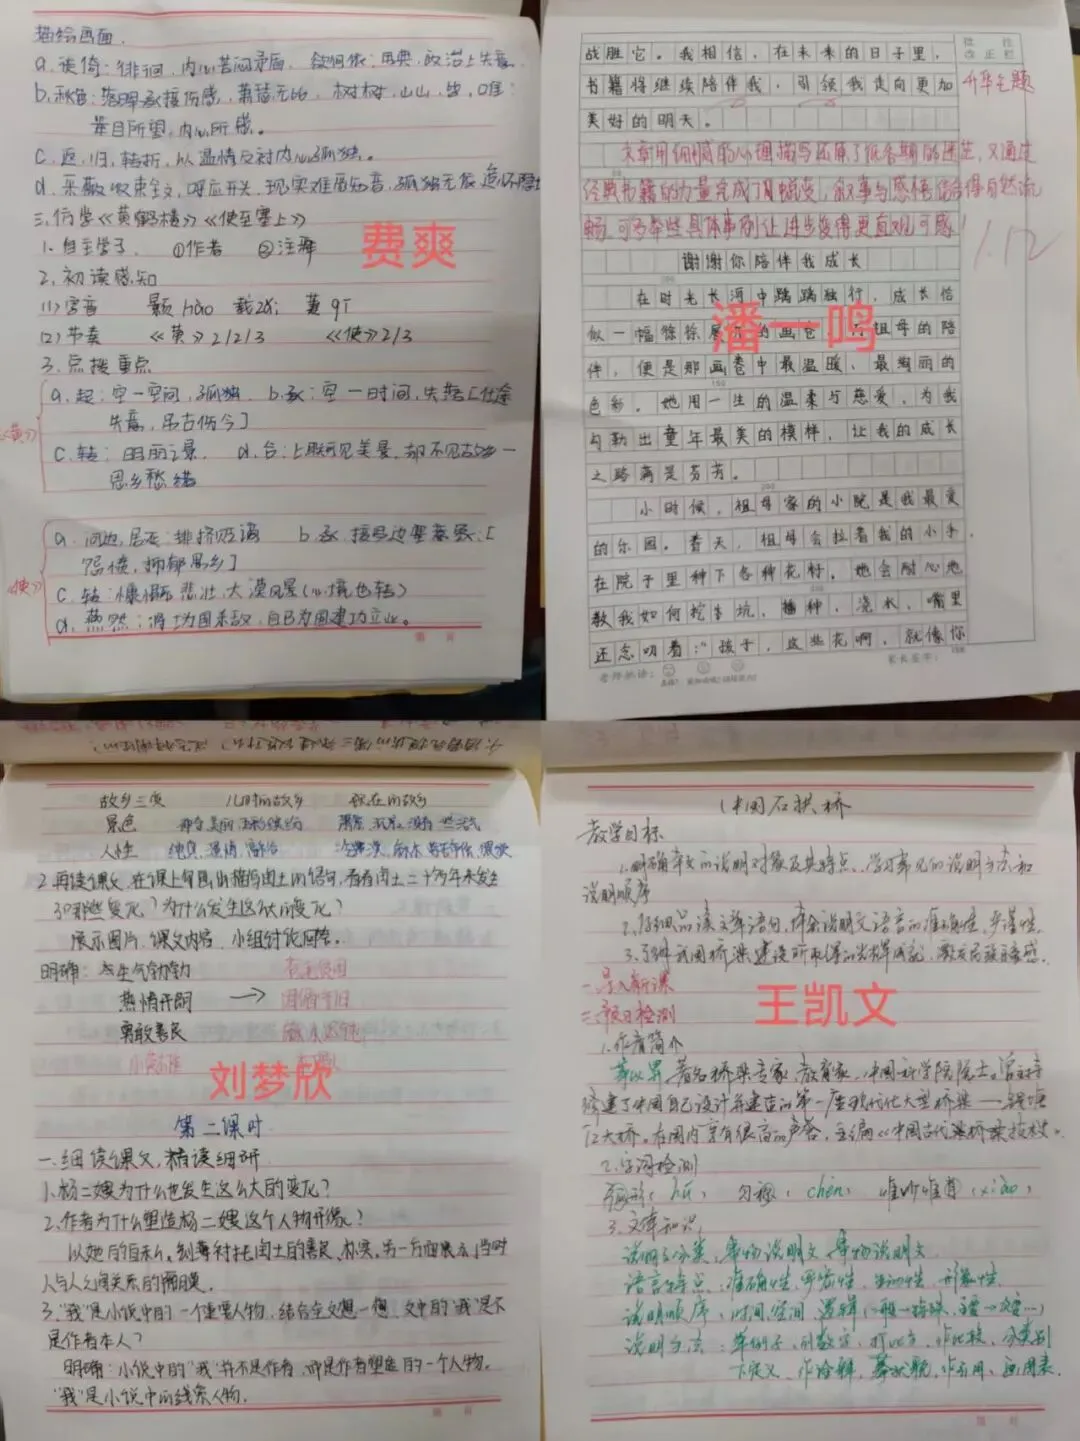 描绘画面.
a.徙倚:徘徊,内心苦闷矛盾 欲何依:用典,政治上失意
b.秋色:落晖承接伤感,萧瑟无比,树树,山山,皆,唯:
景目所望,内心所感。
c.返,归,转折,以温情反衬内心孤独。
d.采薇收束全文,呼应开头,现实难觅知音,孤独无依
三.仿学《黄鹤楼》《使至塞上》
1.自主学习 ①作者 ②注释
费爽
2.初读感知
(1)字音 颢hào 载zài
(2)节奏 《黄》2/2/3 《使》2/3
3.点拨重点
《黄》
a.起:空—空间,孤独 b.承:空—时间,失落[仕途
失意,吊古伤今]
c.转:明丽之景. d.合:上联可见美景,却不见故乡—
思乡愁绪
《使》
a.问边,居延:排挤贬谪 b.承,接写边塞景:[
抑郁思乡]
c.转:慷慨悲壮,大漠风景(心境也转)
d.燕然:将为国杀敌,自己为国建功立业。
战胜它。我相信,在未来的日子里,
书籍将继续陪伴我,引领我走向更加
美好的明天。
升华主题
文章用细腻的心理描写还原了低谷期的迷茫,又通过
经典书籍的力量完成了蜕变,叙事与感悟结合得自然流
畅,可多举些具体事例让进步变得更直观可感
1.12
谢谢你陪伴我成长
在时光长河中踽踽独行,成长恰
似一幅徐徐展开的画卷,祖母的陪
潘一鸣
伴,便是那画卷中最温暖、最绚丽的
色彩。她用一生的温柔与慈爱,为我
勾勒出童年最美的模样,让我的成长
之路满是芬芳。
小时候,祖母家的小院是我最爱
的乐园。春天,祖母会拉着我的小手
在院子里种下各种花籽。她会耐心地
教我如何挖坑、播种、浇水,嘴里
还念叨着:“孩子,这些花啊,就像你
老师评语: 家长签字:
故乡三变 儿时的故乡 现在的故乡
景色
人性
2.再读课文,在课上勾画出描写闰土的语句,看看闰土二十多年来发生
了哪些变化?为什么发生这么大的变化?
展示图片,课文内容,小组讨论回答。
明确:有生气勃勃
热情开朗 →
勇敢善良
小英雄
刘梦欣
第二课时
一.细读课文,精读细研
1.杨二嫂为什么也发生这么大的变化?
2.作者为什么塑造杨二嫂这个人物形象?
以她的自私,刻薄衬托闰土的善良、朴实,另一方面展示当时
人与人之间关系的隔膜.
3.“我”是小说中的一个重要人物,结合全文想一想,文中的“我”是不
是作者本人?
明确:小说中的“我”并不是作者,而是作者塑造的一个人物.
“我”是小说中的线索人物.
中国石拱桥
教学目标
1.明确本文的说明对象及其特点,学习常见的说明方法和
说明顺序
2.仔细品读文章语句,体会说明文语言的准确性,严谨性.
3.了解我国桥梁建设所取得的光辉成就,激发民族自豪感.
一.导入新课
二.预习检测
王凯文
1.作者简介
茅以昇,著名桥梁专家,教育家,中国科学院院士。曾主持
修建了中国自己设计并建造的第一座现代化大型桥梁——钱塘
江大桥。在国内享有很高的声誉,主编《中国古代桥梁技术史》.
2.字词检测
弧形(hú) 匀称(chèn) 惟妙惟肖(xiào)
3.文体知识
说明文分类:事物说明文,事理说明文
语言特点:准确性,严密性,生动性,形象性.
说明顺序:时间,空间,逻辑
说明方法:举例子,列数字,打比方,作比较,分类别
下定义、作诠释、摹状貌、作引用、画图表.